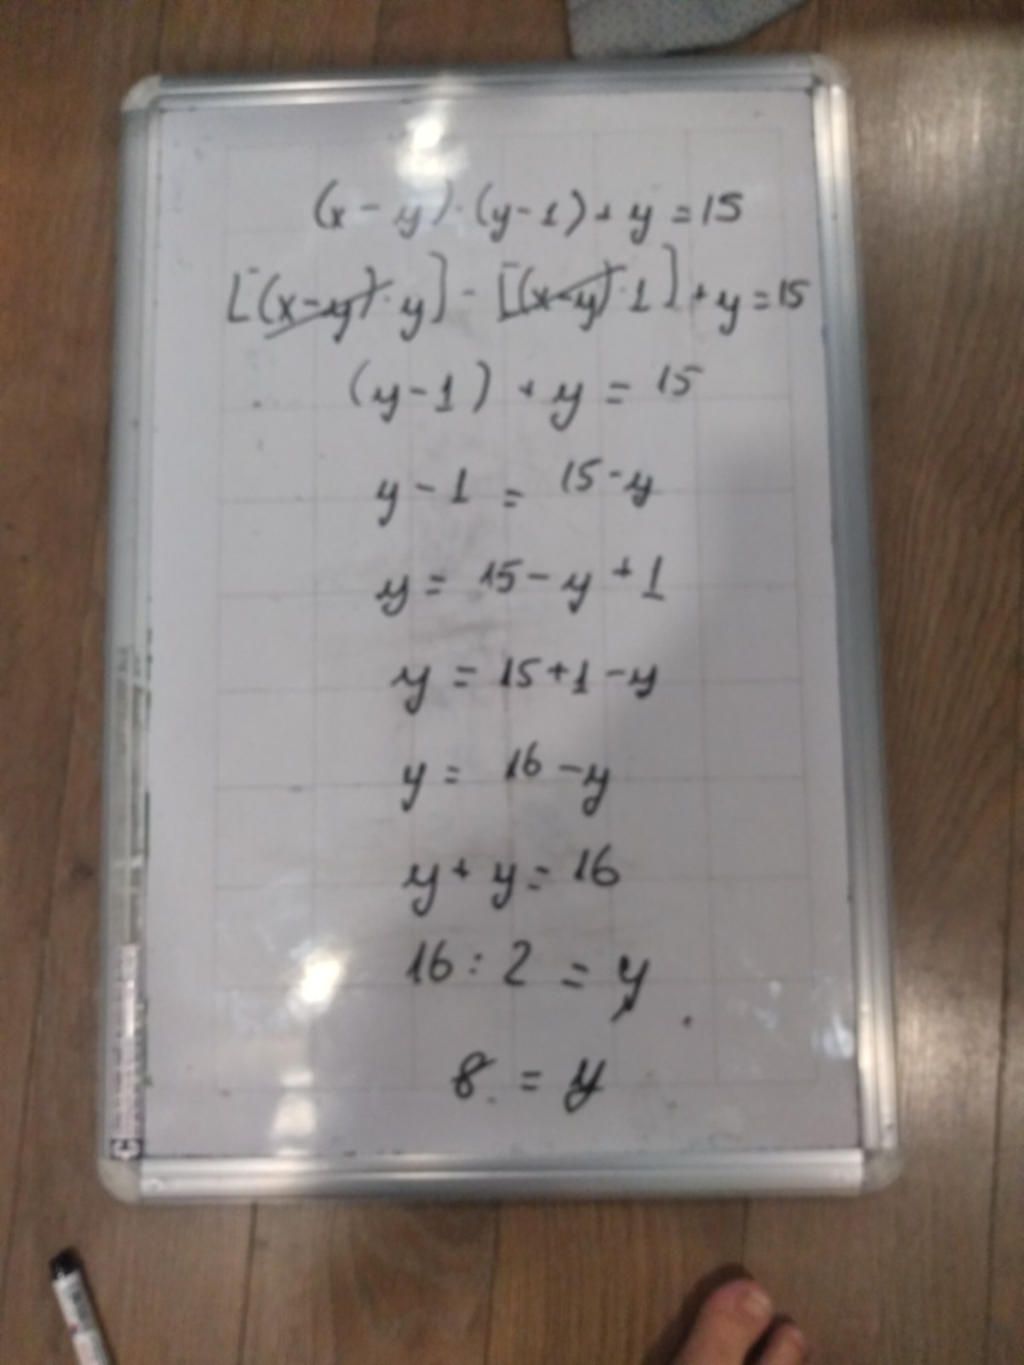 (x - y) · (y - 1) + y = 15
[(x - y) · y] - [(x - y) · 1] + y = 15
(y - 1) + y = 15
y - 1 = 15 - y
y = 15 - y + 1
y = 15 + 1 - y
y = 16 - y
y + y = 16
16 : 2 = y
8 = y